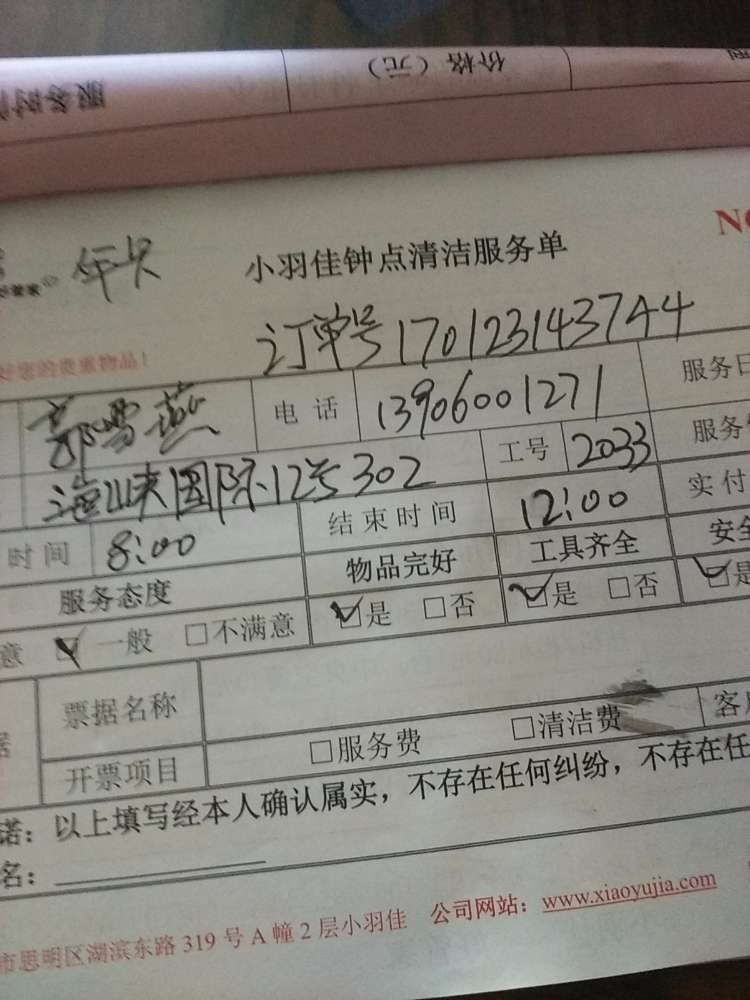 服务时
价格（元）
年卡
小羽佳钟点清洁服务单
订单号170123143744
好您的贵重物品！
郭雪燕 电话 13906001271 服务日
海峡国际12号302 工号 2033 服务
时间 8:00 结束时间 12:00 实付
服务态度 物品完好 工具齐全 安全
意 一般 □不满意 是 □否 是 □否 是
票据名称
开票项目 □服务费 □清洁费 客户
诺：以上填写经本人确认属实，不存在任何纠纷，不存在任
名：
市思明区湖滨东路319号A幢2层小羽佳 公司网站：www.xiaoyujia.com